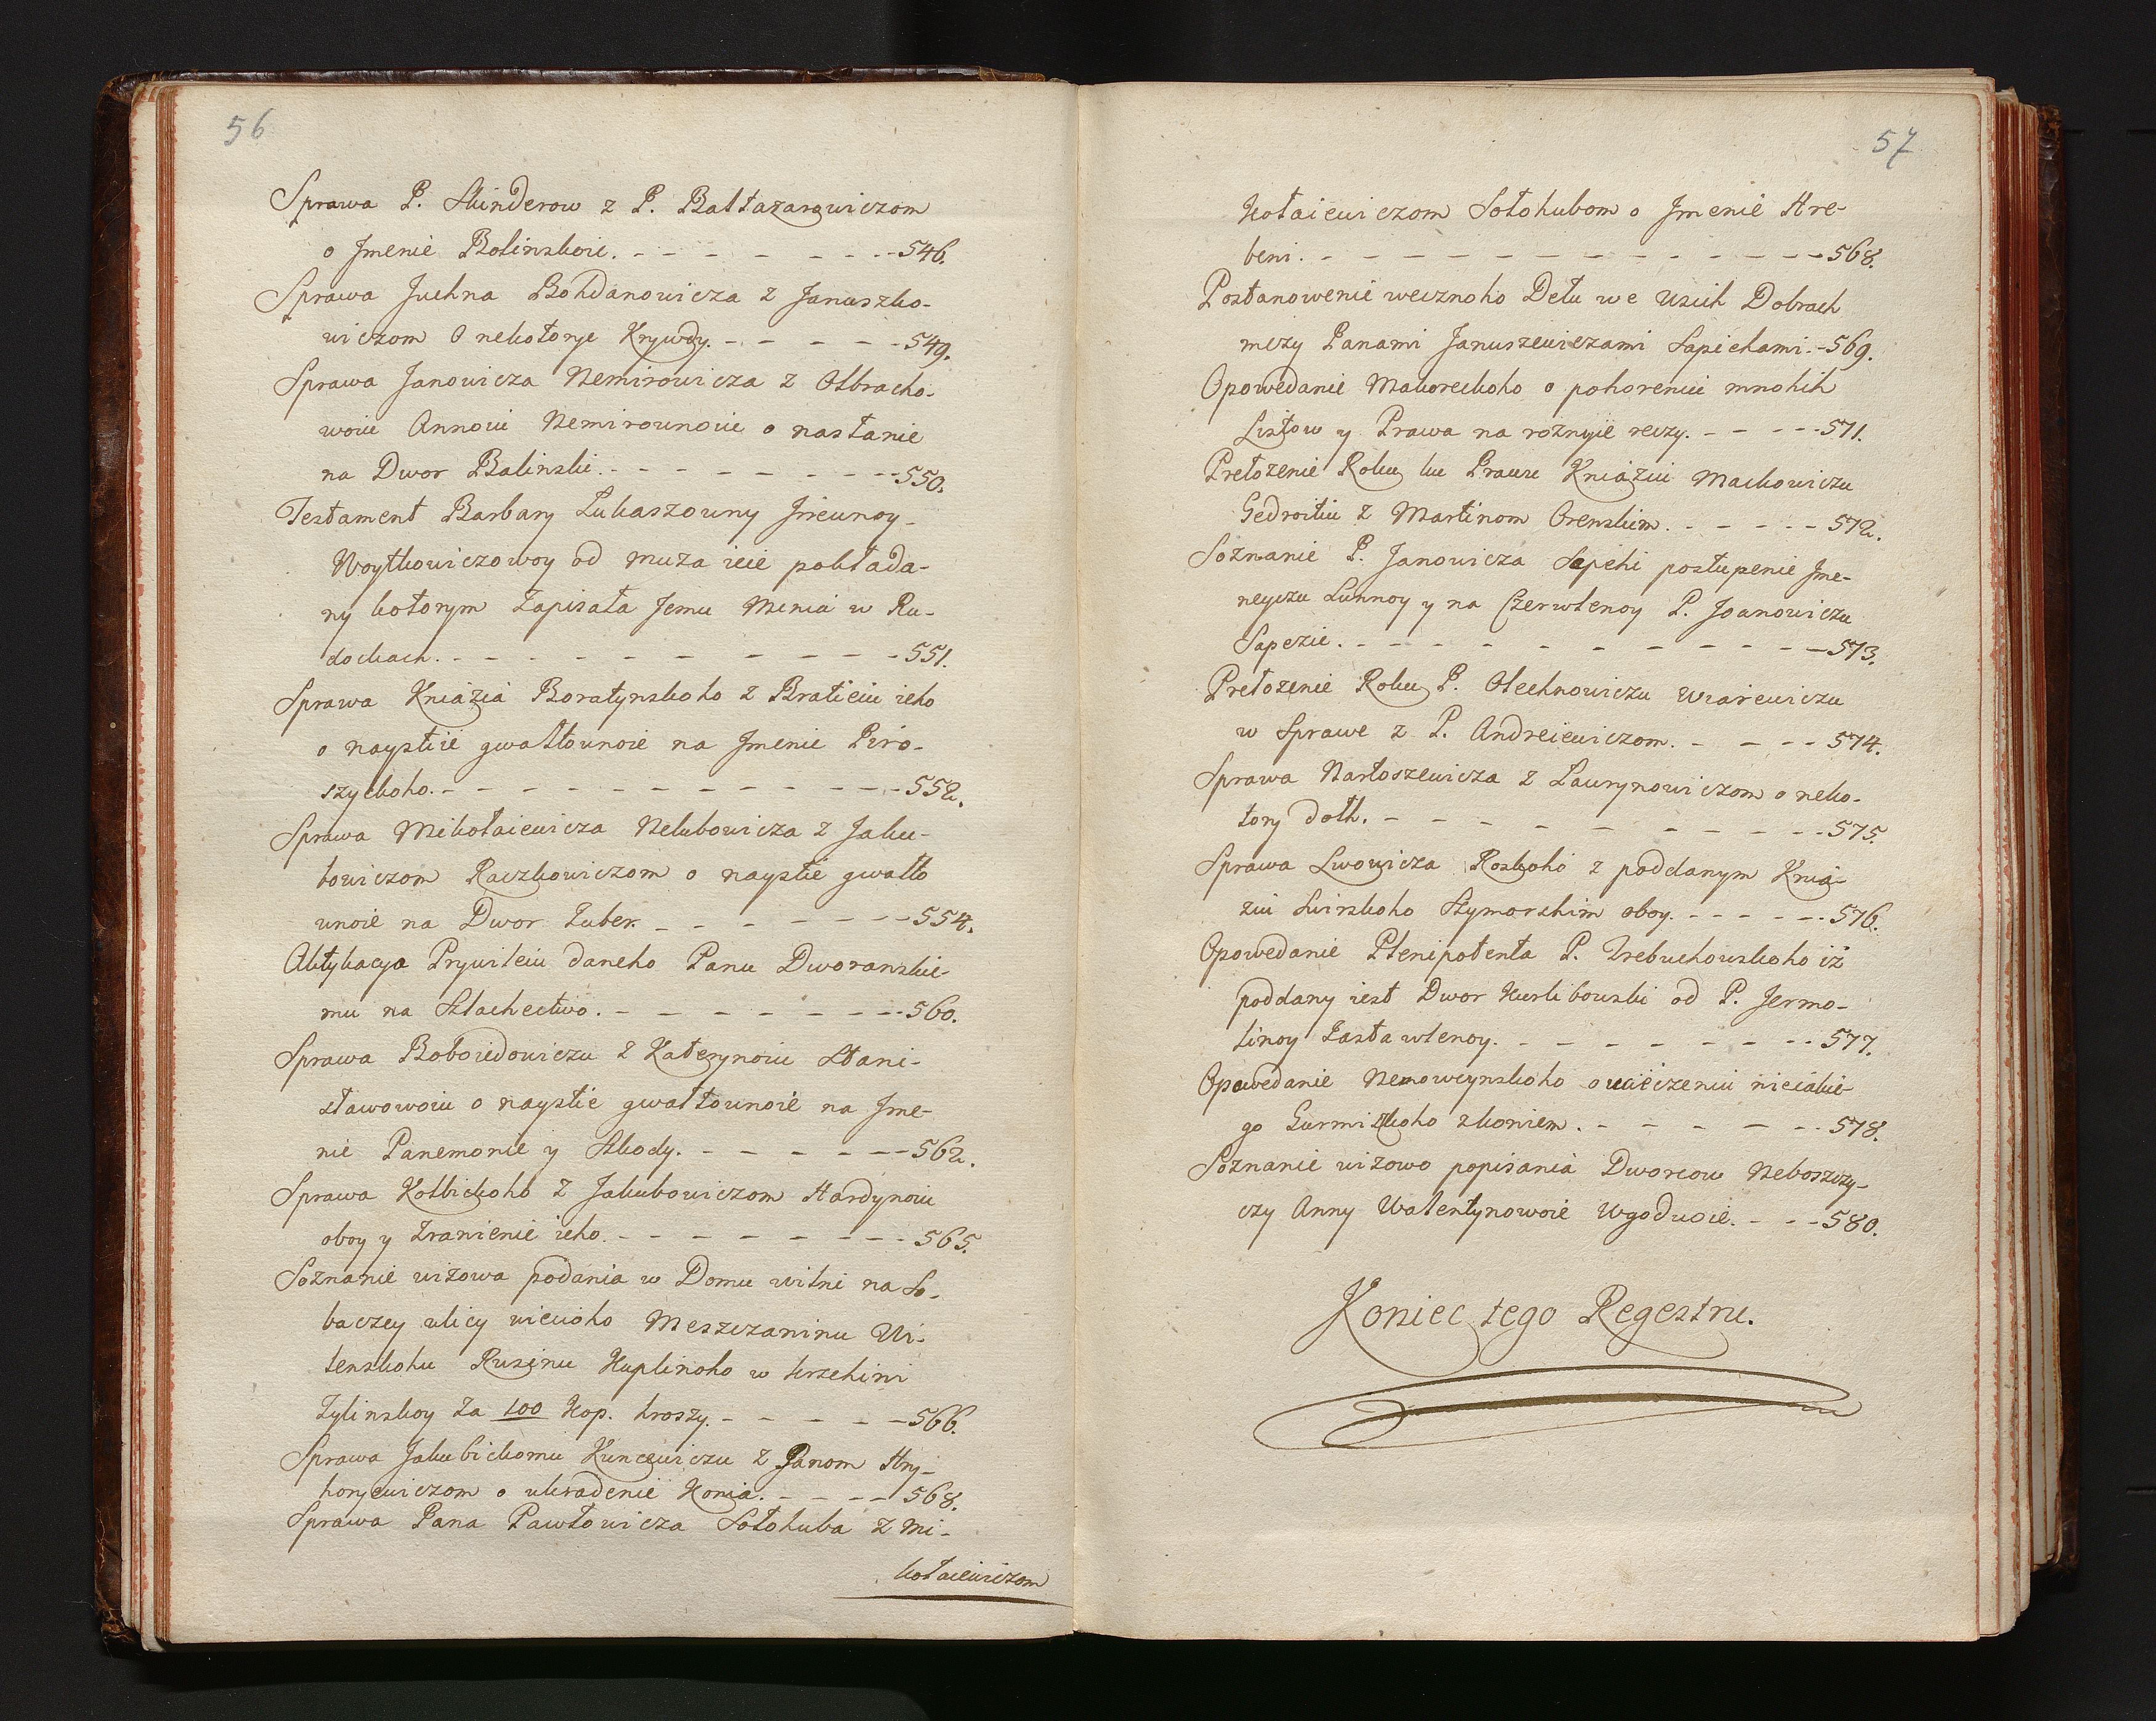 56
Sprawa P. Skinderow z P. Baltazarowiczom
o Jmenie Bolinskoie. - - - - - - - - 546.
Sprawa Juchna Bohdanowicza z Januszko-
wiczom o nekotorye Krywdy. - - - - - 549.
Sprawa Janowicza Nemirowicza z Olbracho-
woiu Annoiu Nemirounoiu o nastanie
na Dwor Balinski. - - - - - - - - 550.
Testament Barbary Lukaszouny
Woytkowiczowoy od muza ieie pokłada-
ny kotorym Zapisała Jemu Menia w Ru-
dockach. - - - - - - - - - - 551.
Sprawa Kniazia Boratynskoho z Bratieiu ieho
o naystie gwałtounoie na Jmenie Piro-
szyckoho. - - - - - - - - - - - 552.
Sprawa Mikołaiewicza Nelubowicza z Jaku-
bowiczom Raczkowiczom o naystie gwałto
unoie na Dwor Zuber. - - - - - - - 554.
Aktykacya Prywileiu daneho Panu Dworanskie-
mu na Szlachectwo. - - - - - - - - 560.
Sprawa Boboiedowiczu z Katerynoiu Stani-
sławowoiu o naystie gwałtounoie na Jme-
nie Panemonie y Szkody. - - - - - - 562.
Sprawa Kolbickoho z Jakubowiczom Hardynoiu
oboy y Zranienie ieho. - - - - - - - - 565.
Soznanie wizowa podania w Domu wilni na So-
baczey ulicy nieiioho Meszczaninu Wi-
lenskohu Rusinu Kuplinoho w
Zylinskoy za 100 Kop. hroszy. - - - - - 566.
Sprawa Jakubickomu Kuncewiczu z Panom Hry-
horyewiczom o ukradenie Konia. - - - - 568.
Sprawa Pana Pawłowicza Sołohuba z Mi-
kołaiewiczom
57
Kołaiewiczom Sołohubom o Jmenie Hre-
beni. - - - - - - - - - - - - - - 568.
Postanowenie wecznoho Dełu we wsich Dobrach
mezy Panami Januszewiczami Sapiehami. - 569.
Opowedanie Makoreckoho o pohoreniu mnohih
Listow y Prawa na roznyie reczy. - - - - - 571.
Prełozenie Roku ku Prawu Kniaziu Mackowiczu
Gedroitiu z Martinom Orenskim. - - - - - 572.
Soznanie P. Janowicza Sapehi postupenie Jme-
neyczu Lunnoy y na Czerwlenoy P. Joanowiczu
Sapezie. - - - - - - - - - - - 573.
Prełozenie Roku P. Olechnowiczu Wiażewiczu
w Sprawe z P. Andreiewiczom. - - - - 574.
Sprawa Bartoszewicza z Laurynowiczom o neko-
tory dolh. - - - - - - - - - - 575.
Sprawa Lwowicza Roskoho z poddanym Knia-
ziu Swirskoho Szymorskim oboy. - - - - - - 576.
Opowedanie Plenipotenta P. Trebuchowskoho iż
poddany iest Dwor Kurlibowski od P. Jermo-
linoy Zastawlenoy. - - - - - - - - 577.
Opowedanie Nemoweynskoho o ucieczeniu nieiakie-
go Gurmizkoho zkoniem. - - - - - - 578.
Soznanie wizowo popisania Dworcow Neboszczy-
czy Anny Walentynowoie Wgoduoie. - - - 580.
Koniec tego Regestru.